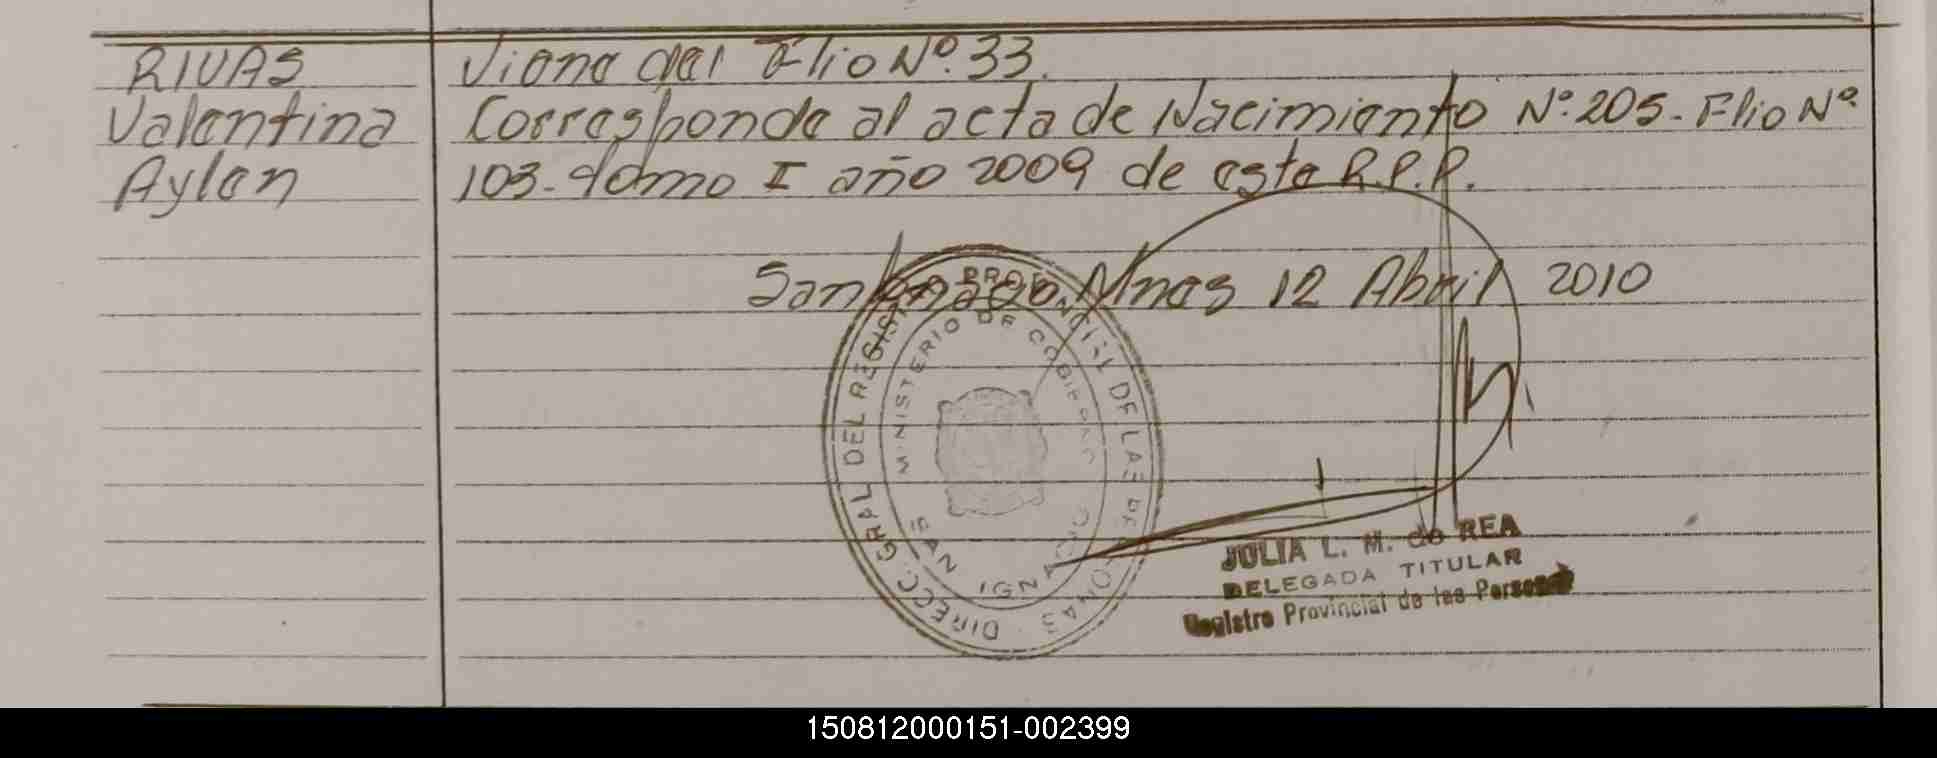 RIVAS
Valentina
Aylen
Viene del Flio Nº. 33.
Corresponde al acta de Nacimiento Nº. 205. Flio Nº
103. tomo I año 2009 de este R.P.P.
San Ignacio Mnes 12 Abril 2010
DIRECC. GRAL DEL REGISTRO PROVINCIAL DE LAS PERSONAS
MINISTERIO DE GOBIERNO
SAN IGNACIO
JULIA L. M. de REA
DELEGADA TITULAR
Registro Provincial de las Personas
150812000151-002399